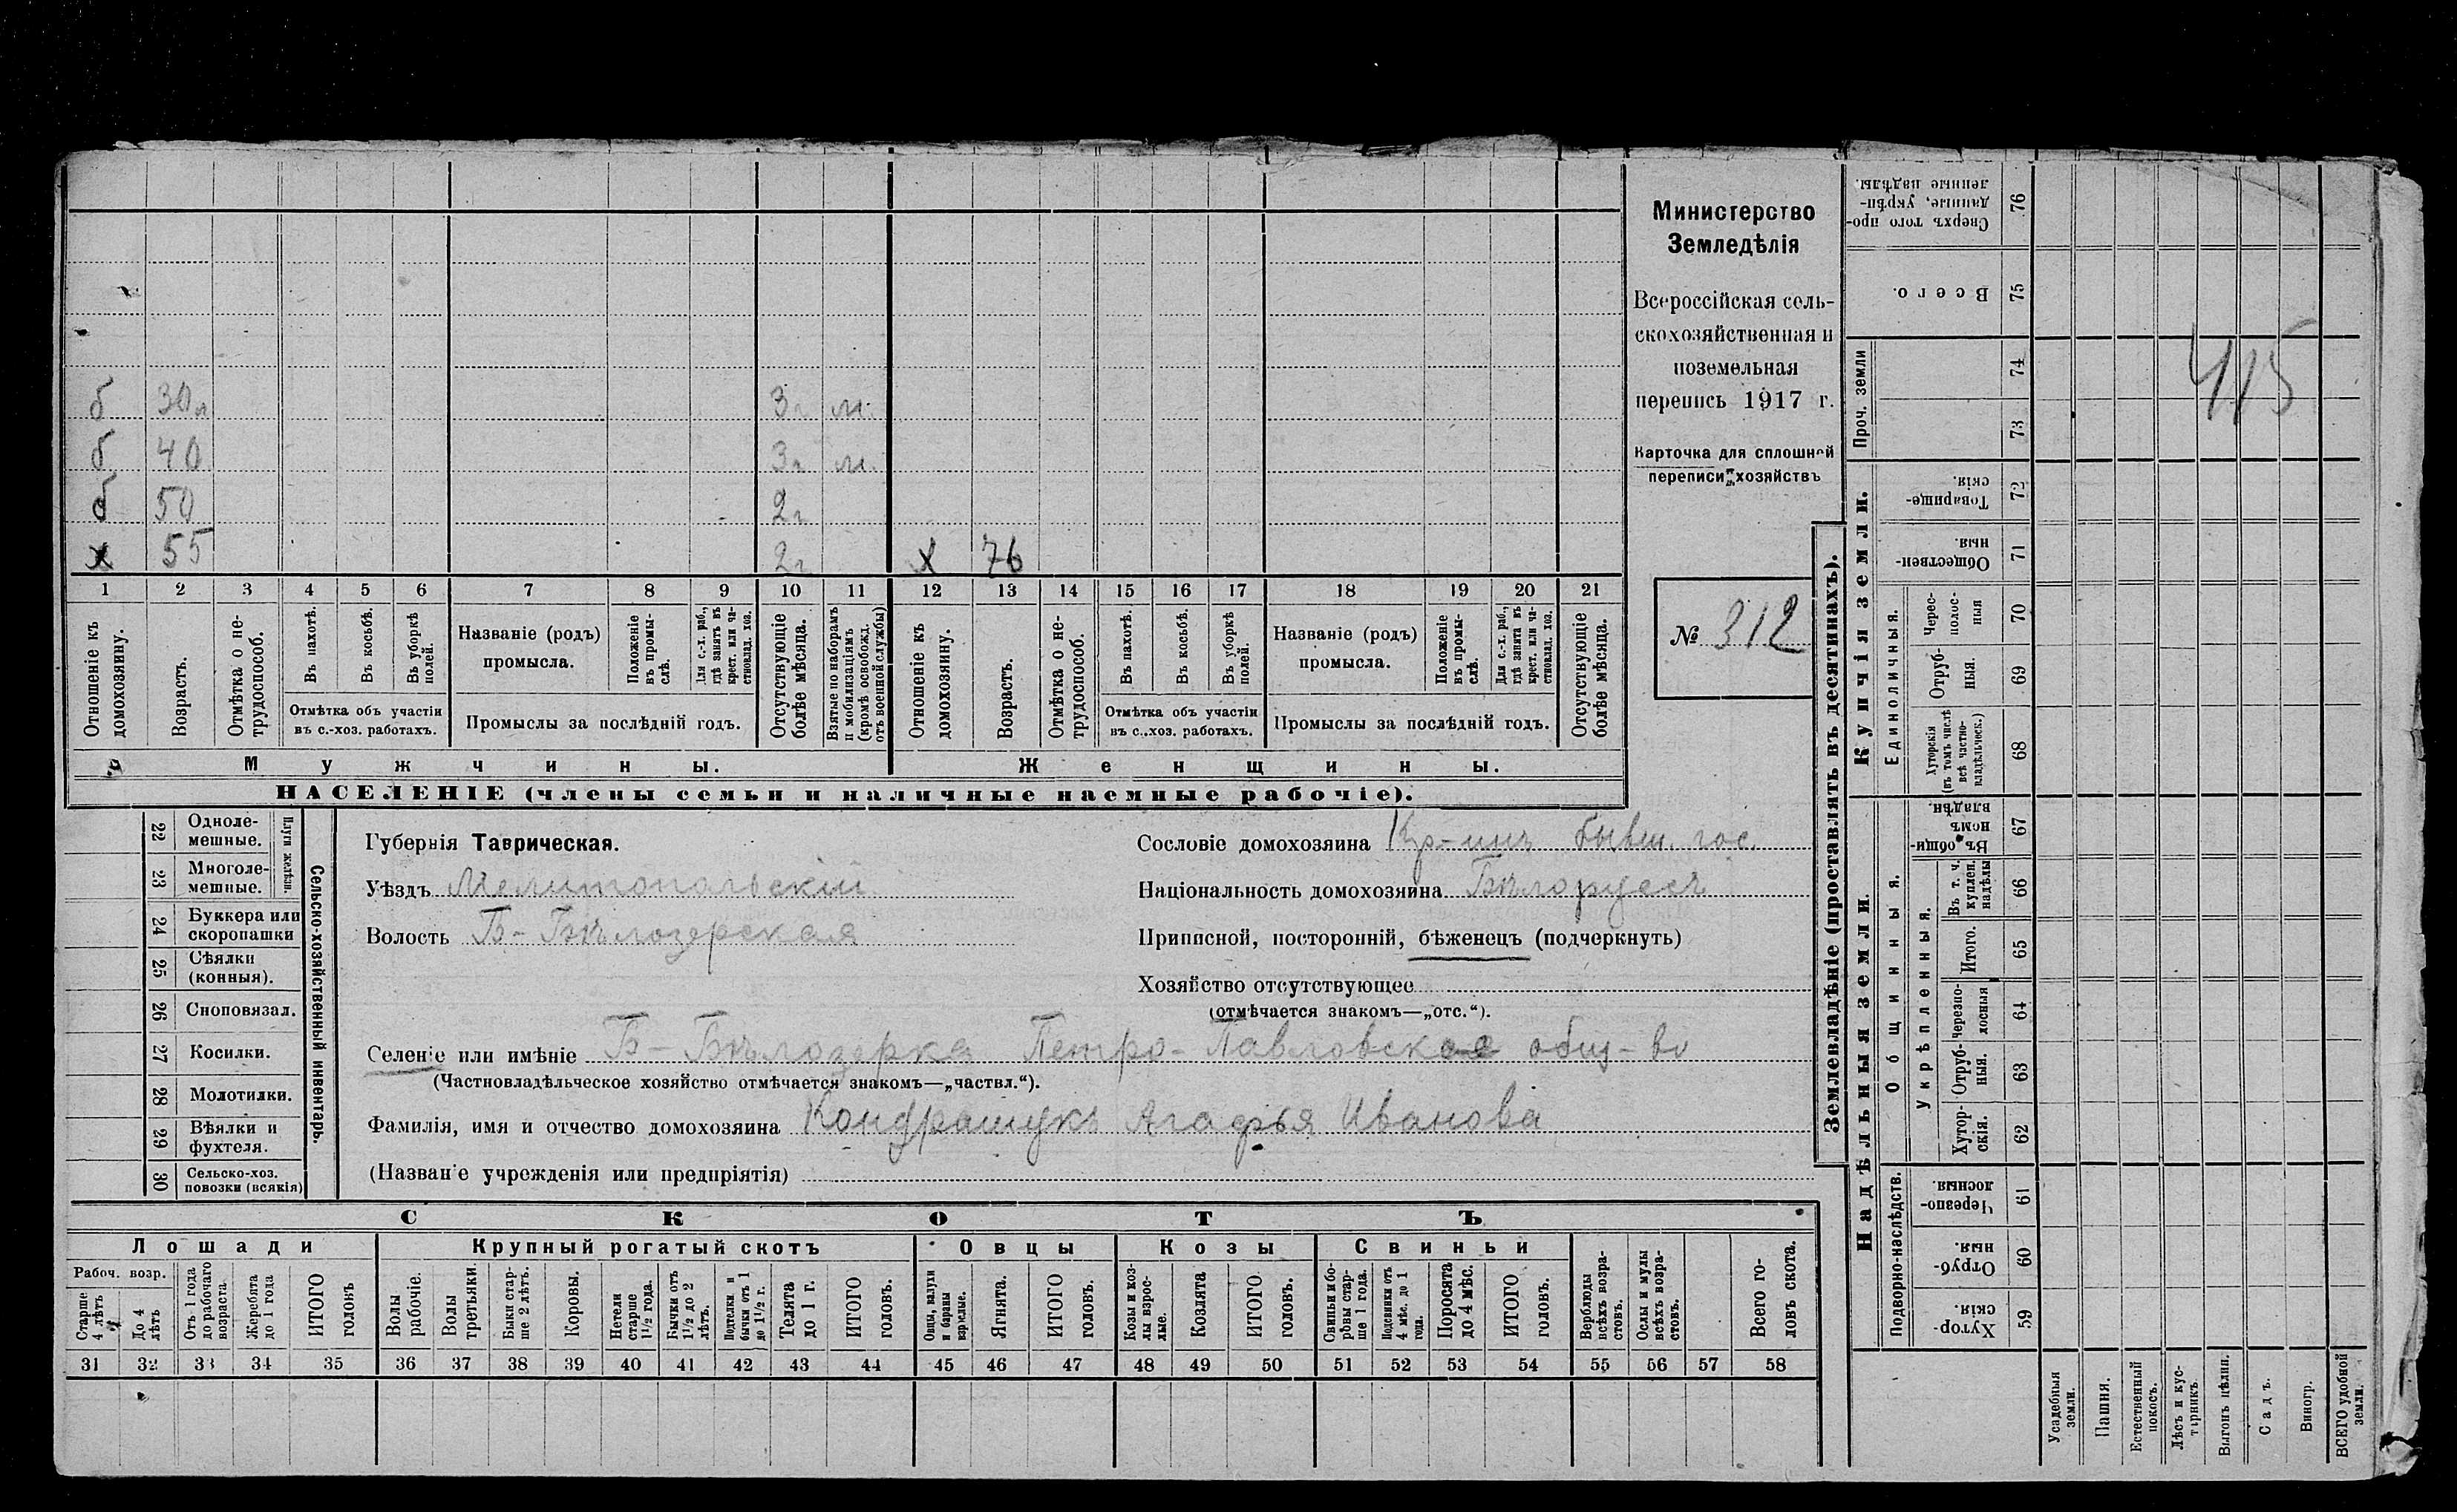 б 30л 3г м.
б 40 3г м.
б 50 2г
х 55 2г х 76
1 2 3 4 5 6 7 8 9 10 11 12 13 14 15 16 17 18 19 20 21
Отношеніе къ домохозяину.
Возрастъ.
Отмѣтка о не-трудоспособ.
Въ пахотѣ.
Въ косьбѣ.
Въ уборкѣ полей.
Отмѣтка объ участіи
въ с.-хоз. работахъ.
Названіе (родъ)
промысла.
Положеніе въ промы-слѣ.
Для с.-х. раб., гдѣ занятъ въ крест. или ча-стновлад. хоз.
Промыслы за послѣдній годъ.
Отсутствующіе болѣе мѣсяца.
Взятые по наборамъ и мобилизаціямъ (кромѣ освобожд. отъ военной службы)
Отношеніе къ домохозяину.
Возрастъ.
Отмѣтка о не-трудоспособ.
Въ пахотѣ.
Въ косьбѣ.
Въ уборкѣ полей.
Отмѣтка объ участіи
въ с.-хоз. работахъ.
Названіе (родъ)
промысла.
Положеніе въ промы-слѣ.
Для с.-х. раб., гдѣ занята въ крест. или ча-стновлад. хоз.
Промыслы за послѣдній годъ.
Отсутствующіе болѣе мѣсяца.
Мужчины. Женщины.
НАСЕЛЕНІЕ (члены семьи и наличные наемные рабочіе).
Министерство
Земледѣлія
Всероссійская сель-
скохозяйственная и
поземельная
перепись 1917 г.
Карточка для сплошной
переписи хозяйствъ
№ 312
22 Одноле-мешные.
23 Многоле-мешные.
Плуги желѣзн.
24 Буккера или скоропашки
25 Сѣялки (конныя).
26 Сноповязал.
27 Косилки.
28 Молотилки.
29 Вѣялки и фухтеля.
30 Сельско-хоз. повозки (всякія)
Сельско-хозяйственный инвентарь.
Губернія Таврическая.
Уѣздъ Мелитопольскій
Волость Б-Бѣлозерская
Сословіе домохозяина Кр-инъ бывш. гос.
Національность домохозяина Бѣлоруссъ
Приписной, посторонній, бѣженецъ (подчеркнуть)
Хозяйство отсутствующее
(отмѣчается знакомъ—„отс.“).
Селеніе или имѣніе Б-Бѣлозерка Петро-Павловское общ-во
(Частновладѣльческое хозяйство отмѣчается знакомъ—„частвл.“).
Фамилія, имя и отчество домохозяина Кондрашукъ Агафья Иванова
(Названіе учрежденія или предпріятія)
СКОТЪ
Лошади Крупный рогатый скотъ Овцы Козы Свиньи
Рабоч. возр.
Старше 4 лѣтъ
До 4 лѣтъ
Отъ 1 года до рабочаго возраста
Жеребята до 1 года
ИТОГО головъ
Волы рабочіе.
Волы третьяки.
Быки стар-ше 2 лѣтъ.
Коровы.
Нетели старше 1½ года.
Бычки отъ 1½ до 2 лѣтъ.
Подтелки и бычки отъ 1 до 1½ г.
Телята до 1 г.
ИТОГО головъ.
Овцы, валухи и бараны взрослые.
Ягнята.
ИТОГО головъ.
Козы и коз-лы взрос-лые.
Козлята
ИТОГО головъ.
Свиньи и бо-ровы стар-ше 1 года.
Подсвинки отъ 4 мѣс. до 1 года.
Поросята до 4 мѣс.
ИТОГО головъ.
Верблюды всѣхъ возра-стовъ.
Ослы и мулы всѣхъ возра-стовъ.
Всего го-ловъ скота.
31 32 33 34 35 36 37 38 39 40 41 42 43 44 45 46 47 48 49 50 51 52 53 54 55 56 57 58
Землевладѣніе (проставлять въ десятинахъ).
Купчія земли.
Надѣльныя земли.
Сверхъ того про-данные, укрѣп-ленные надѣлы. 76
Всего. 75
Проч. земли 74
73
Товарище-скія. 72
Обществен-ныя. 71
Единоличныя.
Черес-полос-ныя 70
Отруб-ныя. 69
Хуторскія (въ томъ числѣ всѣ частно-владѣльческ.) 68
Общинныя.
Въ общин-номъ владѣн. 67
Укрѣпленныя.
Въ т. ч. куплен. надѣлы 66
Итого. 65
Черезпо-лосныя 64
Отруб-ныя. 63
Хутор-скія. 62
Подворно-наслѣдств.
Черезпо-лосныя. 61
Отруб-ныя. 60
Хутор-скія 59
415
Усадебныя земли.
Пашня.
Естественный покосъ.
Лѣсъ и кус-тарникъ.
Выгонъ цѣлин.
Садъ.
Виногр.
ВСЕГО удобной земли.